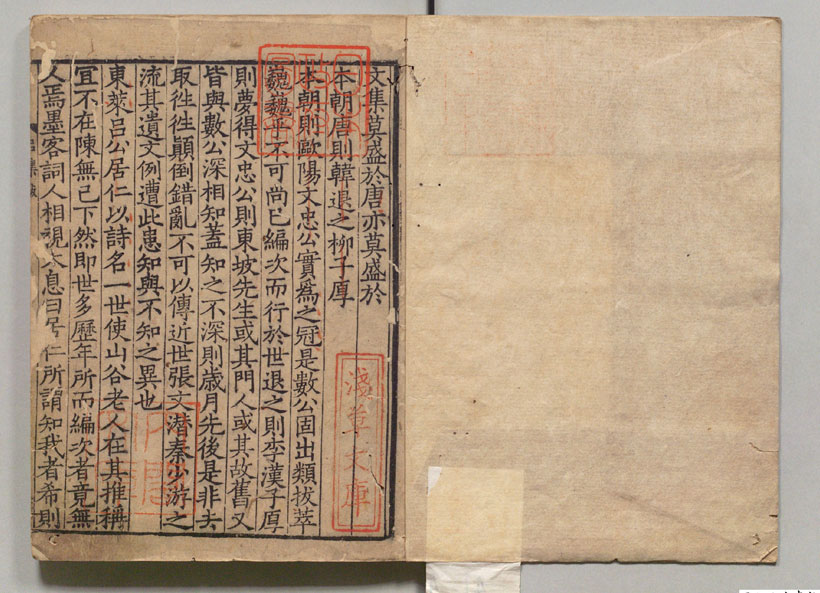 文集莫盛於唐亦莫盛於
本朝唐則韓退之柳子厚
本朝則歐陽文忠公實爲之冠是數公固出類拔萃
巍巍乎不可尚已編次而行於世退之則李漢子厚
則夢得文忠公則東坡先生或其門人或其故舊又
皆與數公深相知蓋知之不深則歲月先後是非去
取徃徃顛倒錯亂不可以傳近世張文潛秦少游之
流其遺文例遭此患知與不知之異也
東萊吕公居仁以詩名一世使山谷老人在其推稱
宜不在陳無己下然即世多歷年所而編次者竟無
人焉墨客詞人相視太息曰居仁所謂知我者希則
淺草文庫